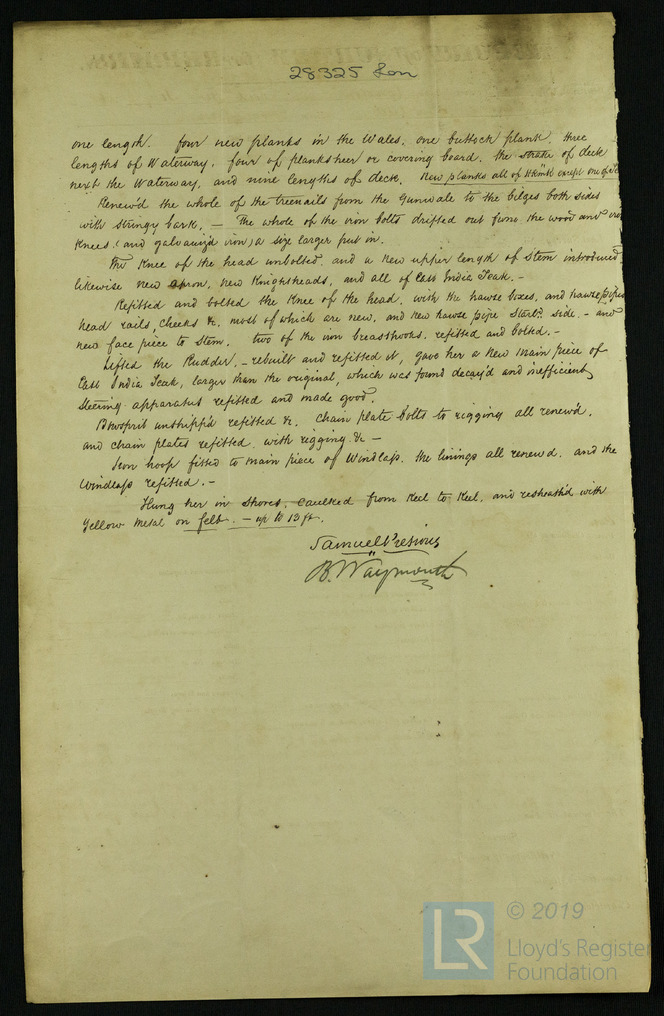 28325 Lon
one length. four new planks in the Wales, one buttock plank, three
lengths of Waterway, four of planksheer or covering board, the strake of deck
next the Waterway, and nine lengths of deck. New planks all of except one of
Renew'd the whole of the Treenails from the Gunwale to the bilges both sides
with stringy bark. — The whole of the iron bolts drifted out from the wood and iron
knees (and galvaniz'd iron) a size larger put in.
The Knee of the head unbolted and a new upper length of Stem introduced
likewise new apron, new Knightsheads, and all of East India Teak. -
Refitted and bolted the Knee of the head, with the hawse boxes, and hawse pipes
head rails, cheeks &c, most of which are new, and new hawse pipe Starbd. side. - and
new face piece to Stem. two of the iron breasthooks, refitted and bolted. -
Lifted the Rudder, - rebuilt and refitted it, gave her a new main piece of
East India Teak, larger than the original, which was found decay'd and inefficient,
Steering apparatus refitted and made good.
Bowsprit unshipp'd refitted &c. Chain plate bolts to rigging all renew'd.
and chain plates refitted, with rigging &c -
Iron hoop fitted to main piece of Windlass. the linings all renew'd. and the
Windlass refitted. -
Hung her in Shores, caulked from Keel to Keel, and resheath'd with
Yellow Metal on felt. - up to 13 ft.
Samuel Pretious
B. Waymouth
LR
© 2019
Lloyd's Register
Foundation